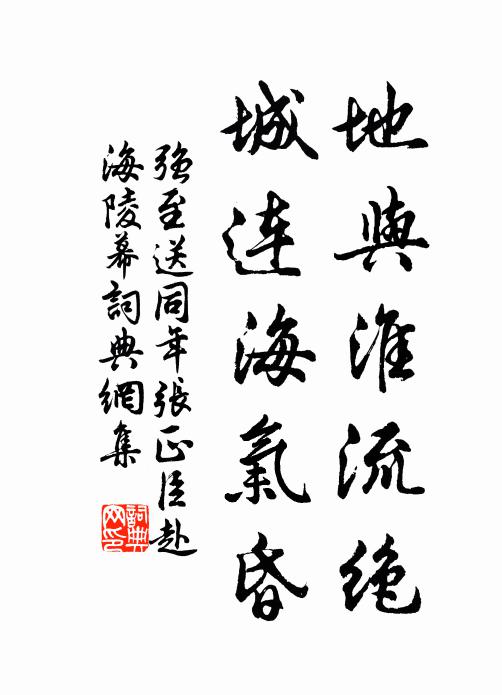 地與淮流絶
城連海氣昏
強至送同年張正臣赴
海陵幕詞典網集
詞典
网印